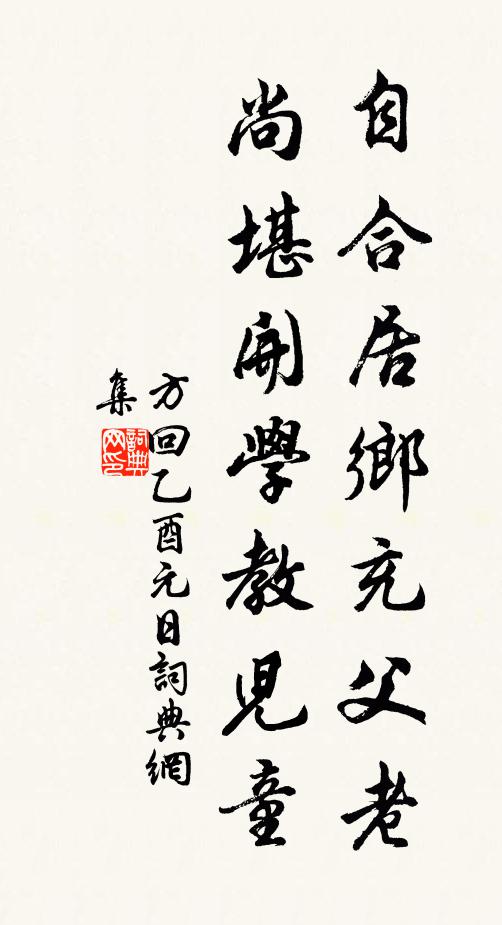 自合居鄉充父老
尚堪開學教兒童
方回乙酉元日詞典網
集
詞典网印